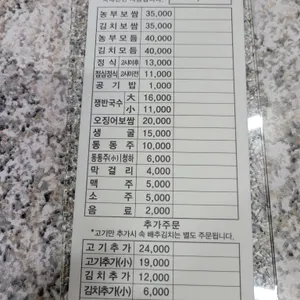 농부보쌈 35,000
김치보쌈 35,000
농부모듬 40,000
김치모듬 40,000
정식 (2시이후) 13,000
점심정식 (2시이전) 11,000
공기밥 1,000
쟁반국수 大 16,000
小 11,000
오징어보쌈 20,000
생굴 15,000
동동주 10,000
동동주(小) 청하 6,000
막걸리 4,000
맥주 5,000
소주 5,000
음료 2,000
추가주문
*고기만 추가시 속 배추김치는 별도 주문됩니다.
고기추가 24,000
고기추가(小) 19,000
김치추가 12,000
김치추가(小) 6,000